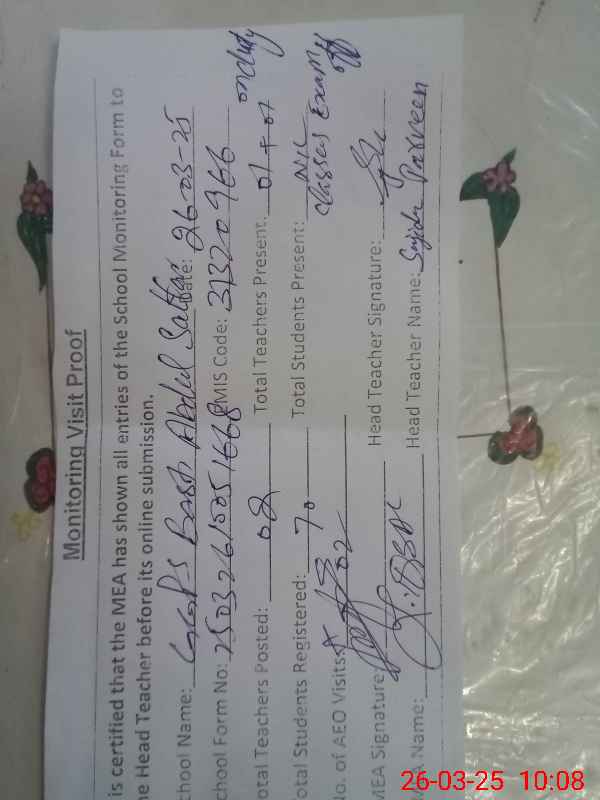 Monitoring Visit Proof
is certified that the MEA has shown all entries of the School Monitoring Form to
he Head Teacher before its online submission.
chool Name: GGPS Basti Abdul Sattar Date: 26-03-25
chool Form No: 25032610051668 EMIS Code: 31320966
otal Teachers Posted: 02 Total Teachers Present: 01+01 onduty
otal Students Registered: 70 Total Students Present: NIL
Classes Exam off
No. of AEO Visits: 02
MEA Signature Head Teacher Signature:
MEA Name: Head Teacher Name: Sajida Parveen
26-03-25 10:08